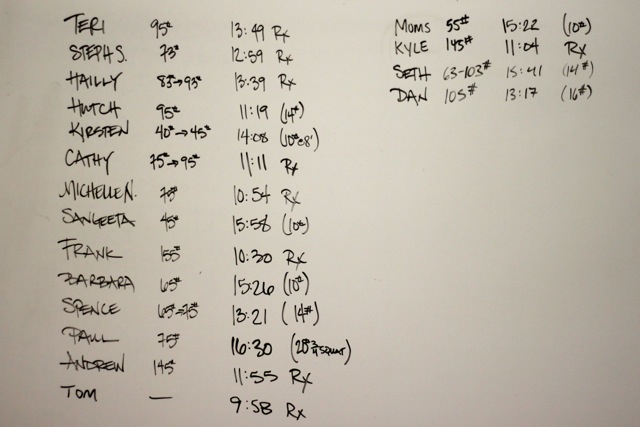 TERI 95# 13:49 Rx
STEPH S. 73# 12:59 Rx
HAILLY 83#→93# 13:39 Rx
HUTCH 95# 11:19 (14#)
KIRSTEN 40#→45# 14:08 (10#@8')
CATHY 75#→95# 11:11 Rx
MICHELLE N. 73# 10:54 Rx
SANGEETA 45# 15:58 (10#)
FRANK 155# 10:30 Rx
BARBARA 65# 15:26 (10#)
SPENCE 65#→75# 13:21 (14#)
PAUL 75# 16:30 (20# 3/4 SQUAT)
ANDREW 145# 11:55 Rx
TOM — 9:58 Rx
MOMS 55# 15:22 (10#)
KYLE 145# 11:04 Rx
SETH 63-103# 15:41 (14#)
DAN 105# 13:17 (16#)